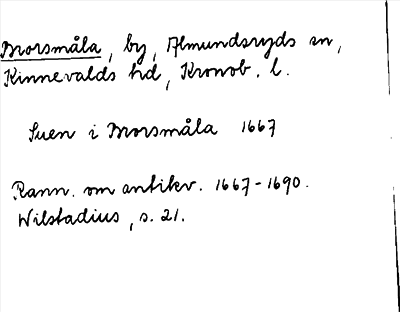 Morsmåla, by, Almundsryds sn,
Kinnevalds hd, Kronob. l.
Suen i Morsmåla 1667
Rann. om antikv. 1667-1690.
Wilstadius, s. 21.